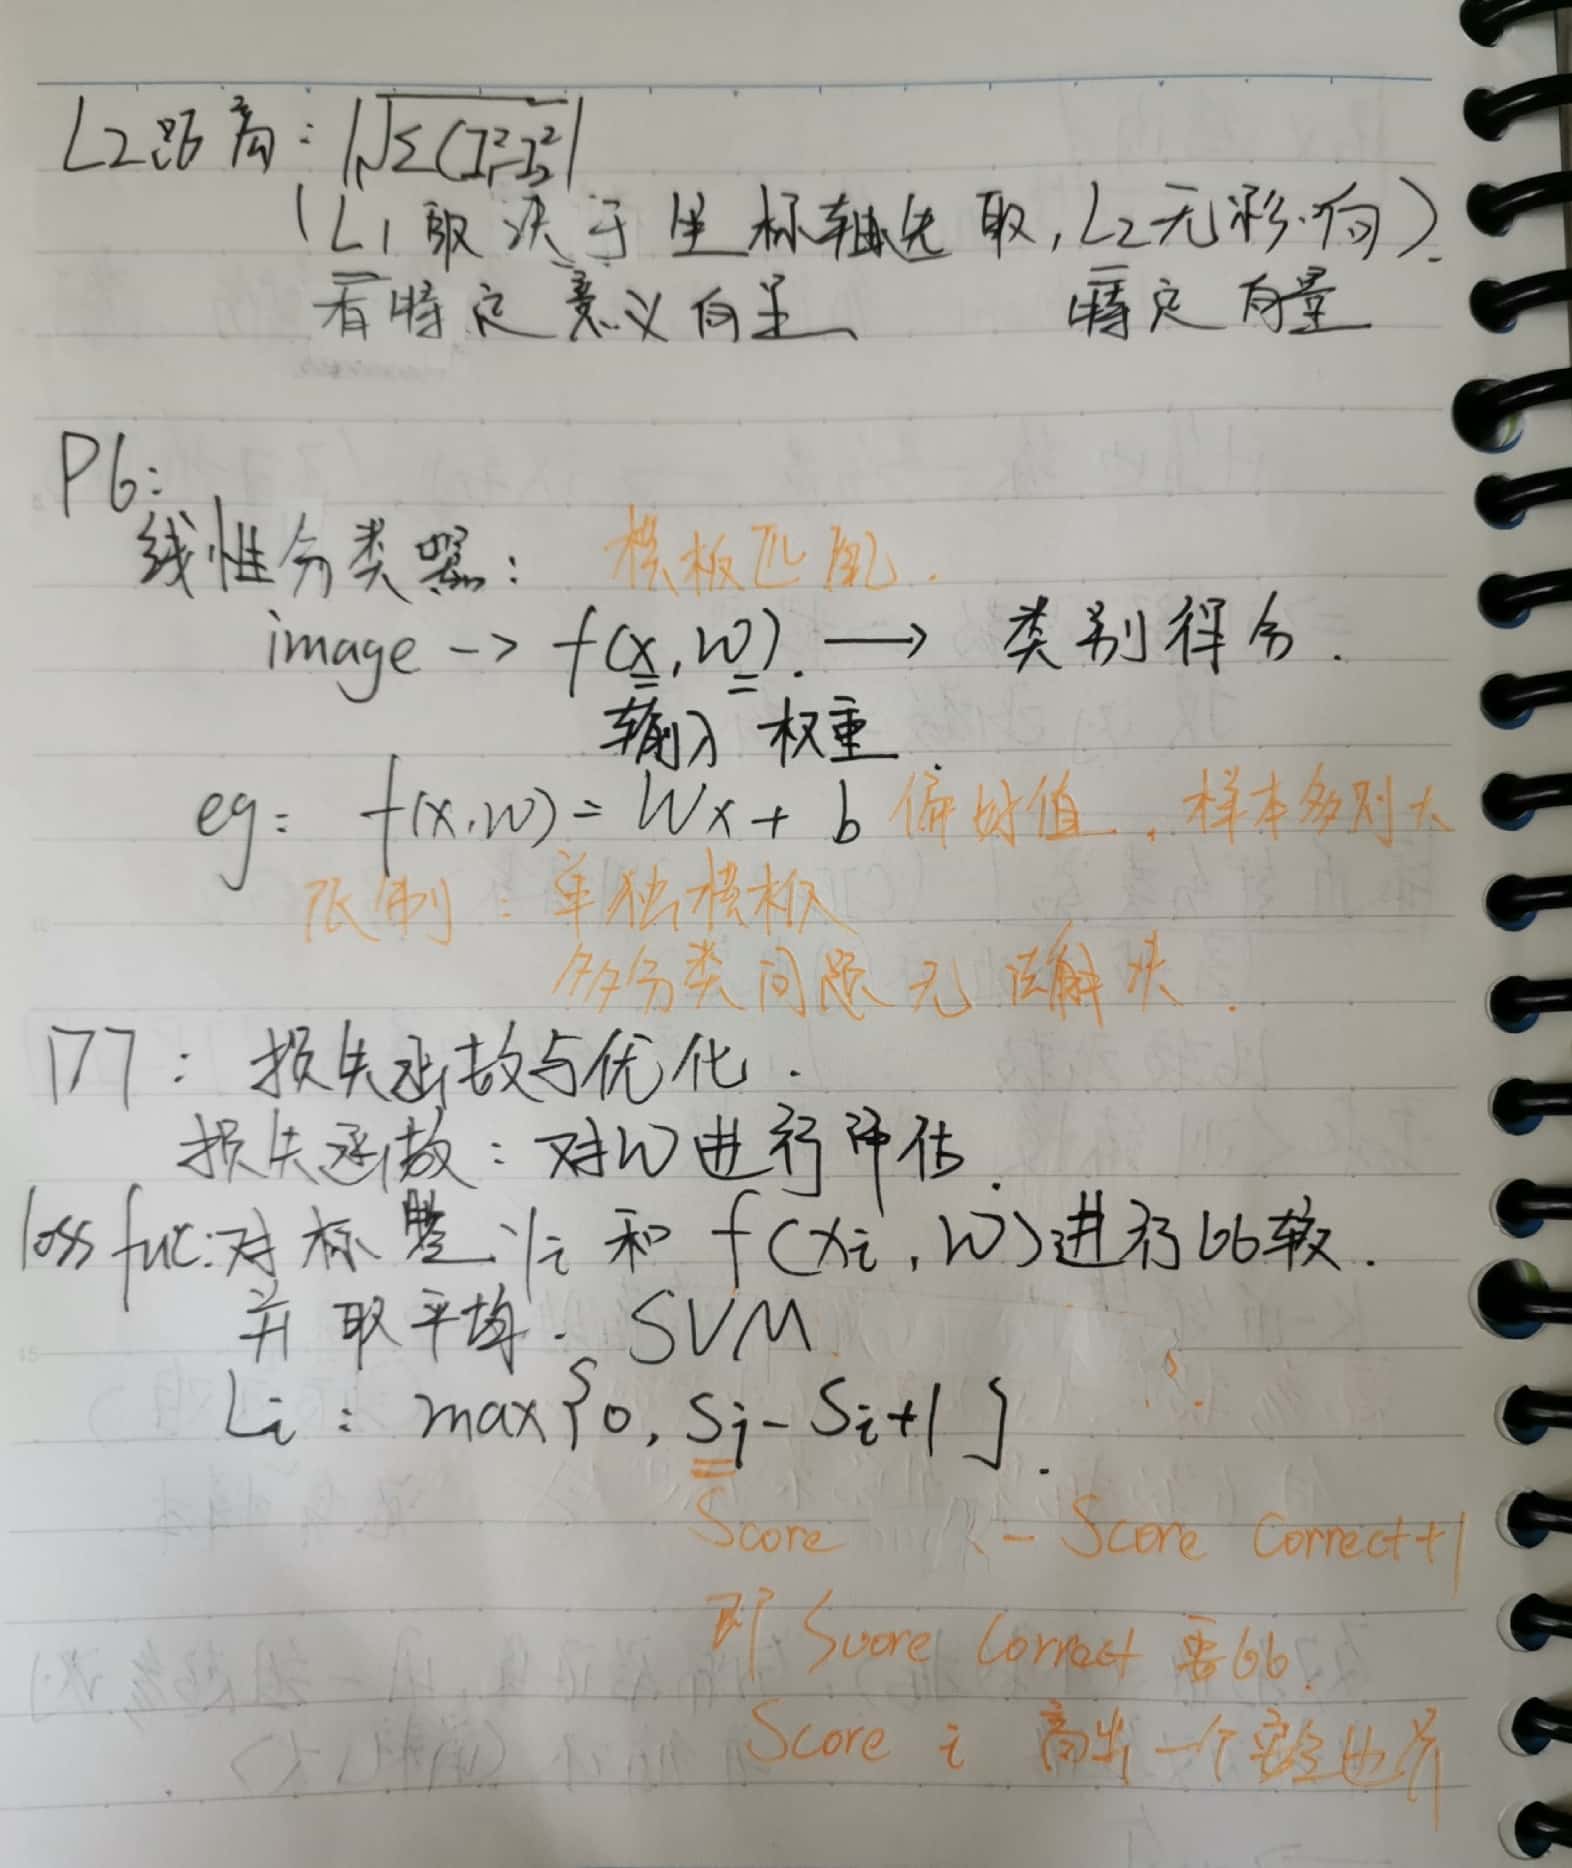 L2距离: |√Σ(I₁²-I₂²|
(L1取决于坐标轴选取,L2无影响).
有特定意义向量、 特定向量
P6:
线性分类器: 模板匹配.
image -> f(x,W). → 类别得分.
输入 权重.
eg: f(x,W)=Wx+b 偏好值,样本多则大
限制:单独模板
多分类问题无法解决.
P7:损失函数与优化.
损失函数:对W进行评估.
loss fuc:对标签yi和f(xi,W)进行比较.
并取平均. SVM
Li: max{0, Sj-Si+1}.
Score - Score Correct+1
即 Score Correct 要比
Score i 高出一个安全边界